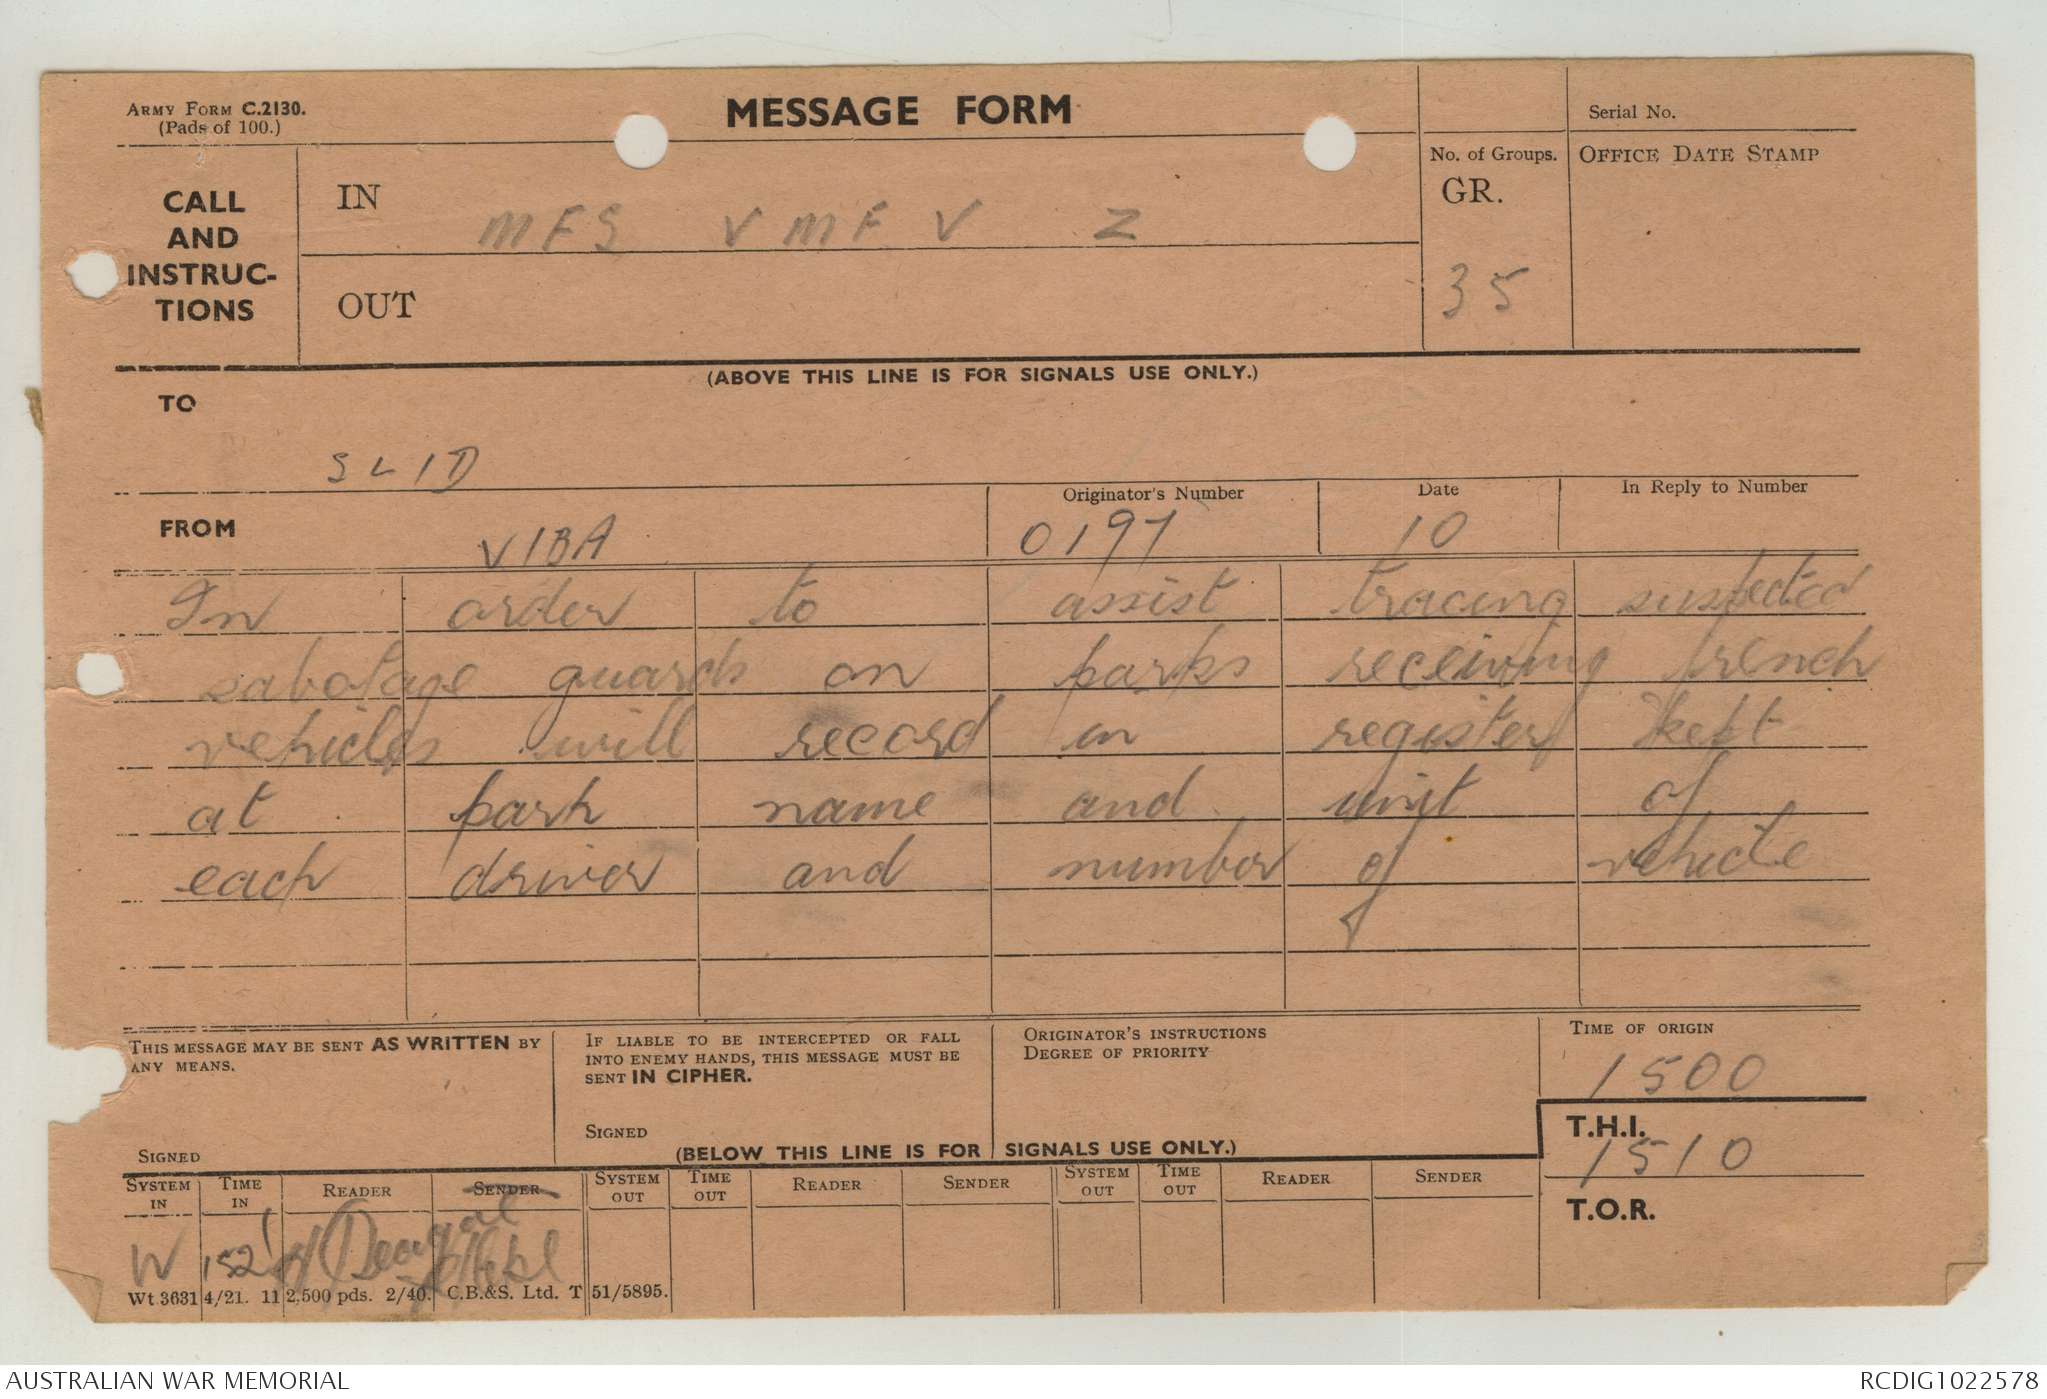 ARMY FORM C.2130.
(Pads of 100.)
MESSAGE FORM
Serial No.
CALL
AND
INSTRUC-
TIONS
IN
MFS V MF V Z
OUT
No. of Groups.
GR.
35
OFFICE DATE STAMP
(ABOVE THIS LINE IS FOR SIGNALS USE ONLY.)
TO
SLID
FROM
VIBA
Originator's Number
0197
Date
10
In Reply to Number
In order to assist tracing suspected
sabotage guards on parks receiving french
vehicles will record in register kept
at park name and unit of
each driver and number of vehicle
THIS MESSAGE MAY BE SENT AS WRITTEN BY
ANY MEANS.
SIGNED
IF LIABLE TO BE INTERCEPTED OR FALL
INTO ENEMY HANDS, THIS MESSAGE MUST BE
SENT IN CIPHER.
SIGNED
ORIGINATOR'S INSTRUCTIONS
DEGREE OF PRIORITY
TIME OF ORIGIN
1500
T.H.I.
1510
T.O.R.
(BELOW THIS LINE IS FOR SIGNALS USE ONLY.)
SYSTEM IN TIME IN READER SENDER SYSTEM OUT TIME OUT READER SENDER SYSTEM OUT TIME OUT READER SENDER
W 1521
Wt.3631 4/21. 112,500 pds. 2/40. C.B.&S. Ltd. T 51/5895.
AUSTRALIAN WAR MEMORIAL
RCDIG1022578